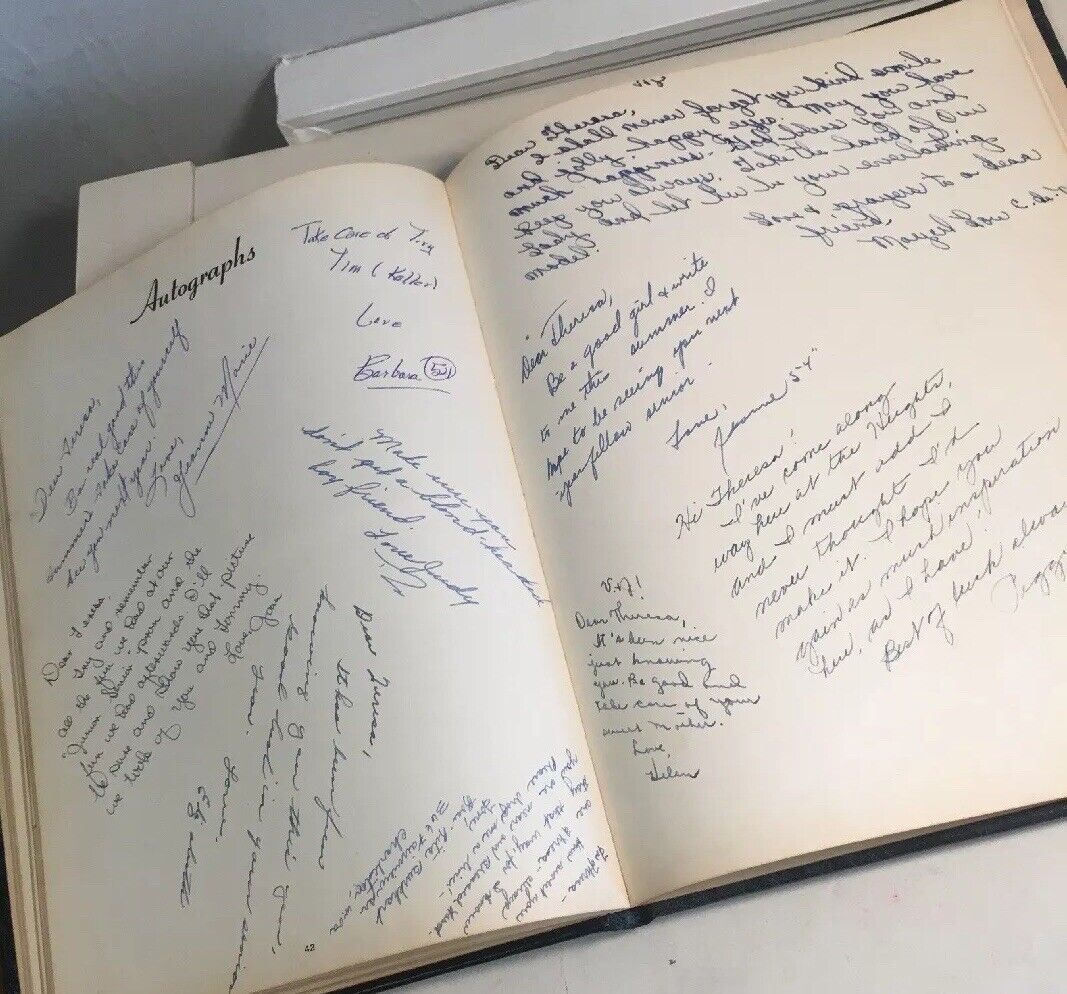 Autographs
Take Care of
Tim (Keller)
Love
Barbara
Dear Teresa,
Be real good this
summer & take care of yourself
See you next year.
Love,
Jeanne Marie
Make sure you
don't get a blond-headed
boy friend.
Love, Judy
Dear Teresa,
try and remember
all the fun we had at our
Junior Senior prom and the
fun we had afterwards. I'll
be sure and show you that picture
we took of you and Tommy.
Love, Joan
Dear Teresa,
It has been fun
knowing you this year,
Good luck in your senior
year.
Love,
42
Dear Theresa,
I shall never forget you kind smile
and jolly, happy eyes. May you have
much happiness. God bless you and
keep you always. Take the hand of Our
Lady and let her be your everlasting
model.
Love & prayers to a dear
friend,
"Dear Theresa,
Be a good girl & write
to me this summer. I
hope to be seeing you next
year fellow senior.
Love,
Jeanne 54"
Hi Theresa!
I've come along
way here at the Heights,
and I must add I
never thought I'd
make it. I hope you
gain as much inspiration
here, as I have!
Best of luck always
Peggy
V+J!
Dear Theresa,
It's been nice
just knowing
you. Be good and
take care of your
sweet Mother.
Love,
Helen